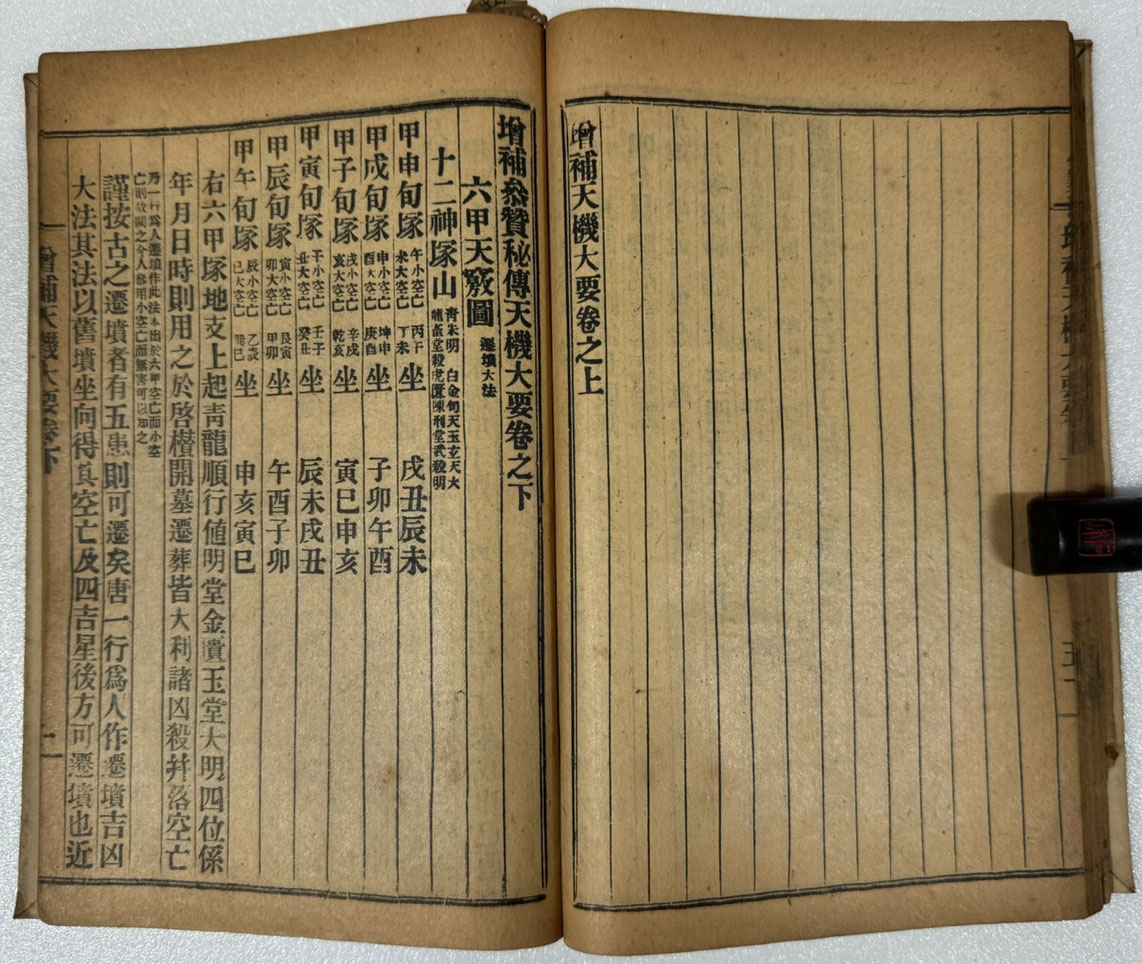 增補天機大要卷之上
增補叅贊秘傳天機大要卷之下
六甲天竅圖 遷墳大法
十二神塚山 靑朱明 白金句天玉玄天大
甲申旬塚 午小空亡 未大空亡 丙午 丁未 坐 戌丑辰未
甲戌旬塚 申小空亡 酉大空亡 坤申 庚酉 坐 子卯午酉
甲子旬塚 戌小空亡 亥大空亡 辛戌 乾亥 坐 寅巳申亥
甲寅旬塚 子小空亡 丑大空亡 壬子 癸丑 坐 辰未戌丑
甲辰旬塚 寅小空亡 卯大空亡 艮寅 甲卯 坐 午酉子卯
甲午旬塚 辰小空亡 巳大空亡 乙辰 巽巳 坐 申亥寅巳
右六甲塚地支上起靑龍順行値明堂金匱玉堂大明四位係
年月日時則用之於啓欑開墓遷葬皆大利諸凶殺并落空亡
乃一行爲人遷墳作此法本出於六甲空亡而小空
亡則放閑之今人參用小空亡而無害可以知之
謹按古之遷墳者有五患則可遷矣唐一行爲人作遷墳吉凶
大法其法以舊墳坐向得眞空亡及四吉星後方可遷墳也近
增補天機大要卷下